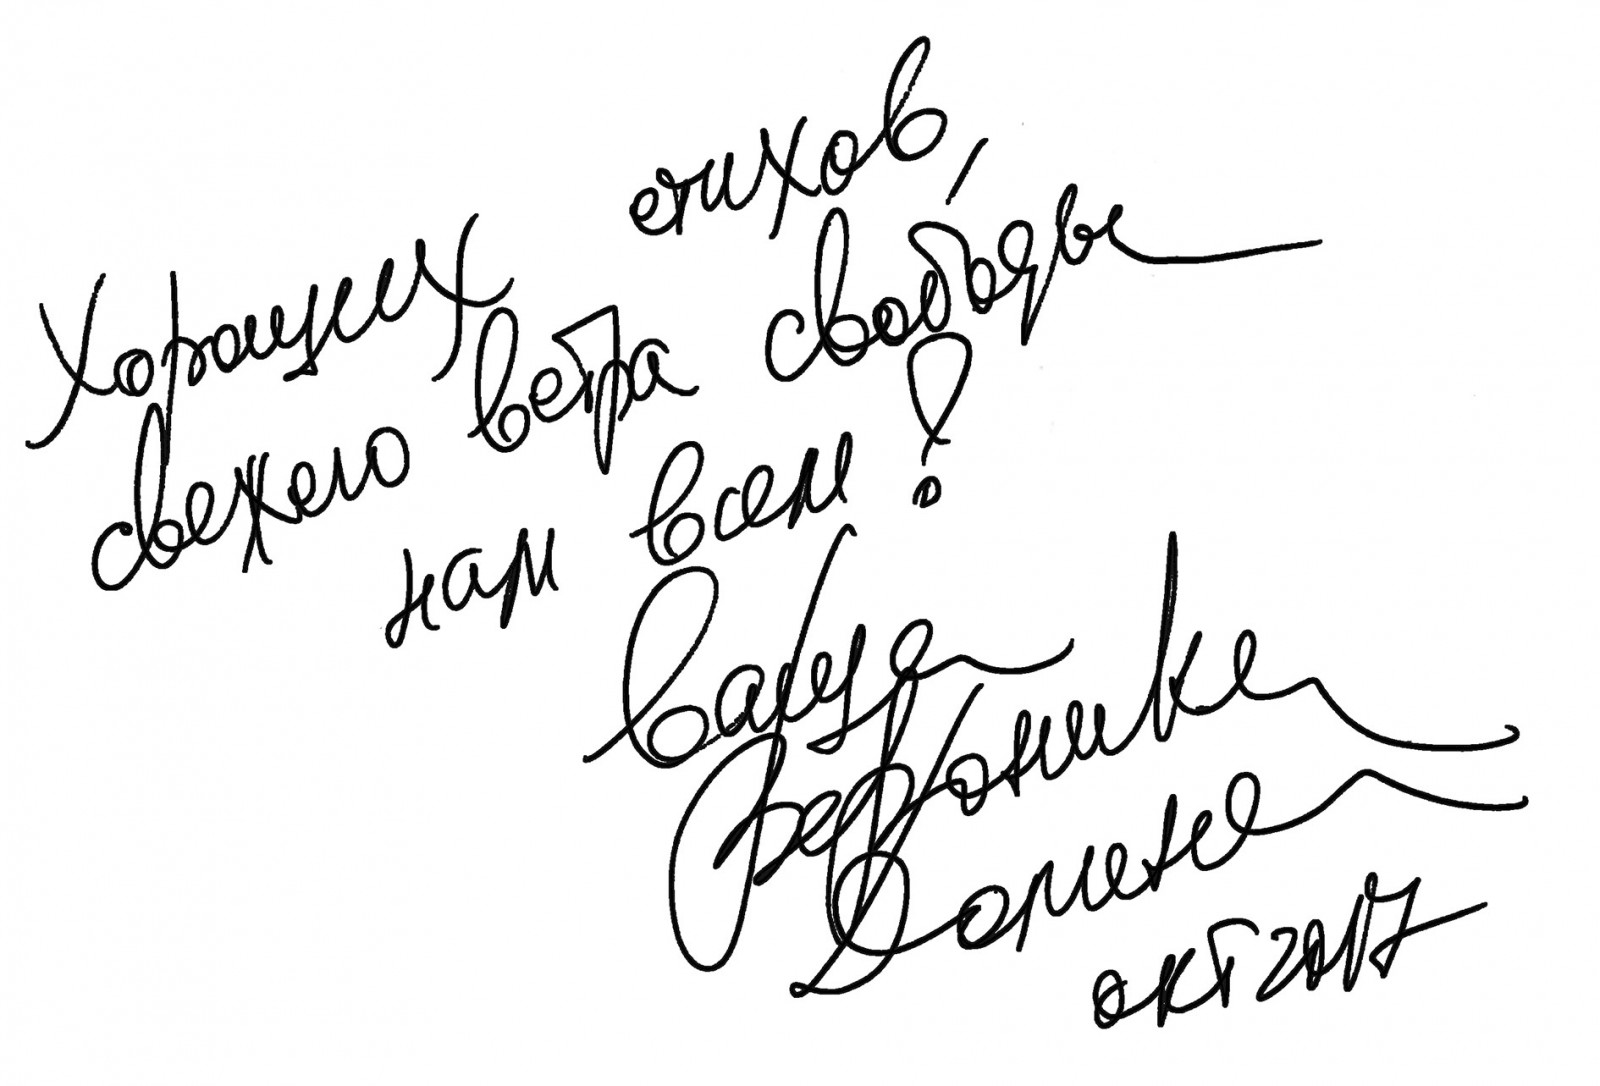 Хороших стихов,
свежего ветра свободы
нам всем!
Ваша
Вероника
Долина
окт 2017